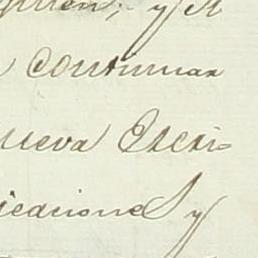 y el
continuar
nueva Escri-
icaciones y